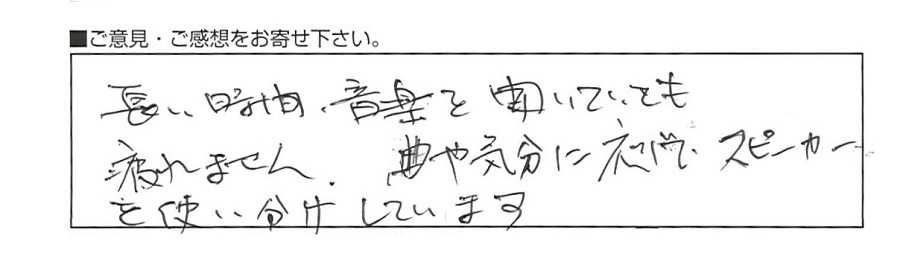 ■ご意見・ご感想をお寄せ下さい。
長い時間、音楽を聞いていても
疲れません。曲や気分に応じて、スピーカー
を使い分けしています